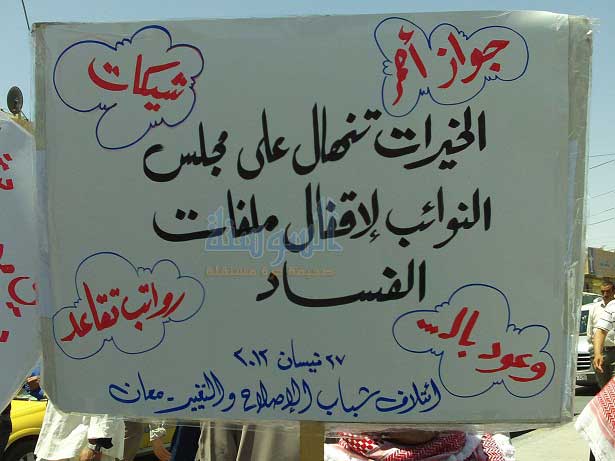 جواز أحمر
شيكات
الخيرات تنهال على مجلس
النوائب لاقفال ملفات
الفساد
رواتب تقاعد
وعود بالـ...
٢٧ نيسان ٢٠١٢
ائتلاف شباب الإصلاح والتغيير - معان
السوسنة
صحيفة حرة مستقلة